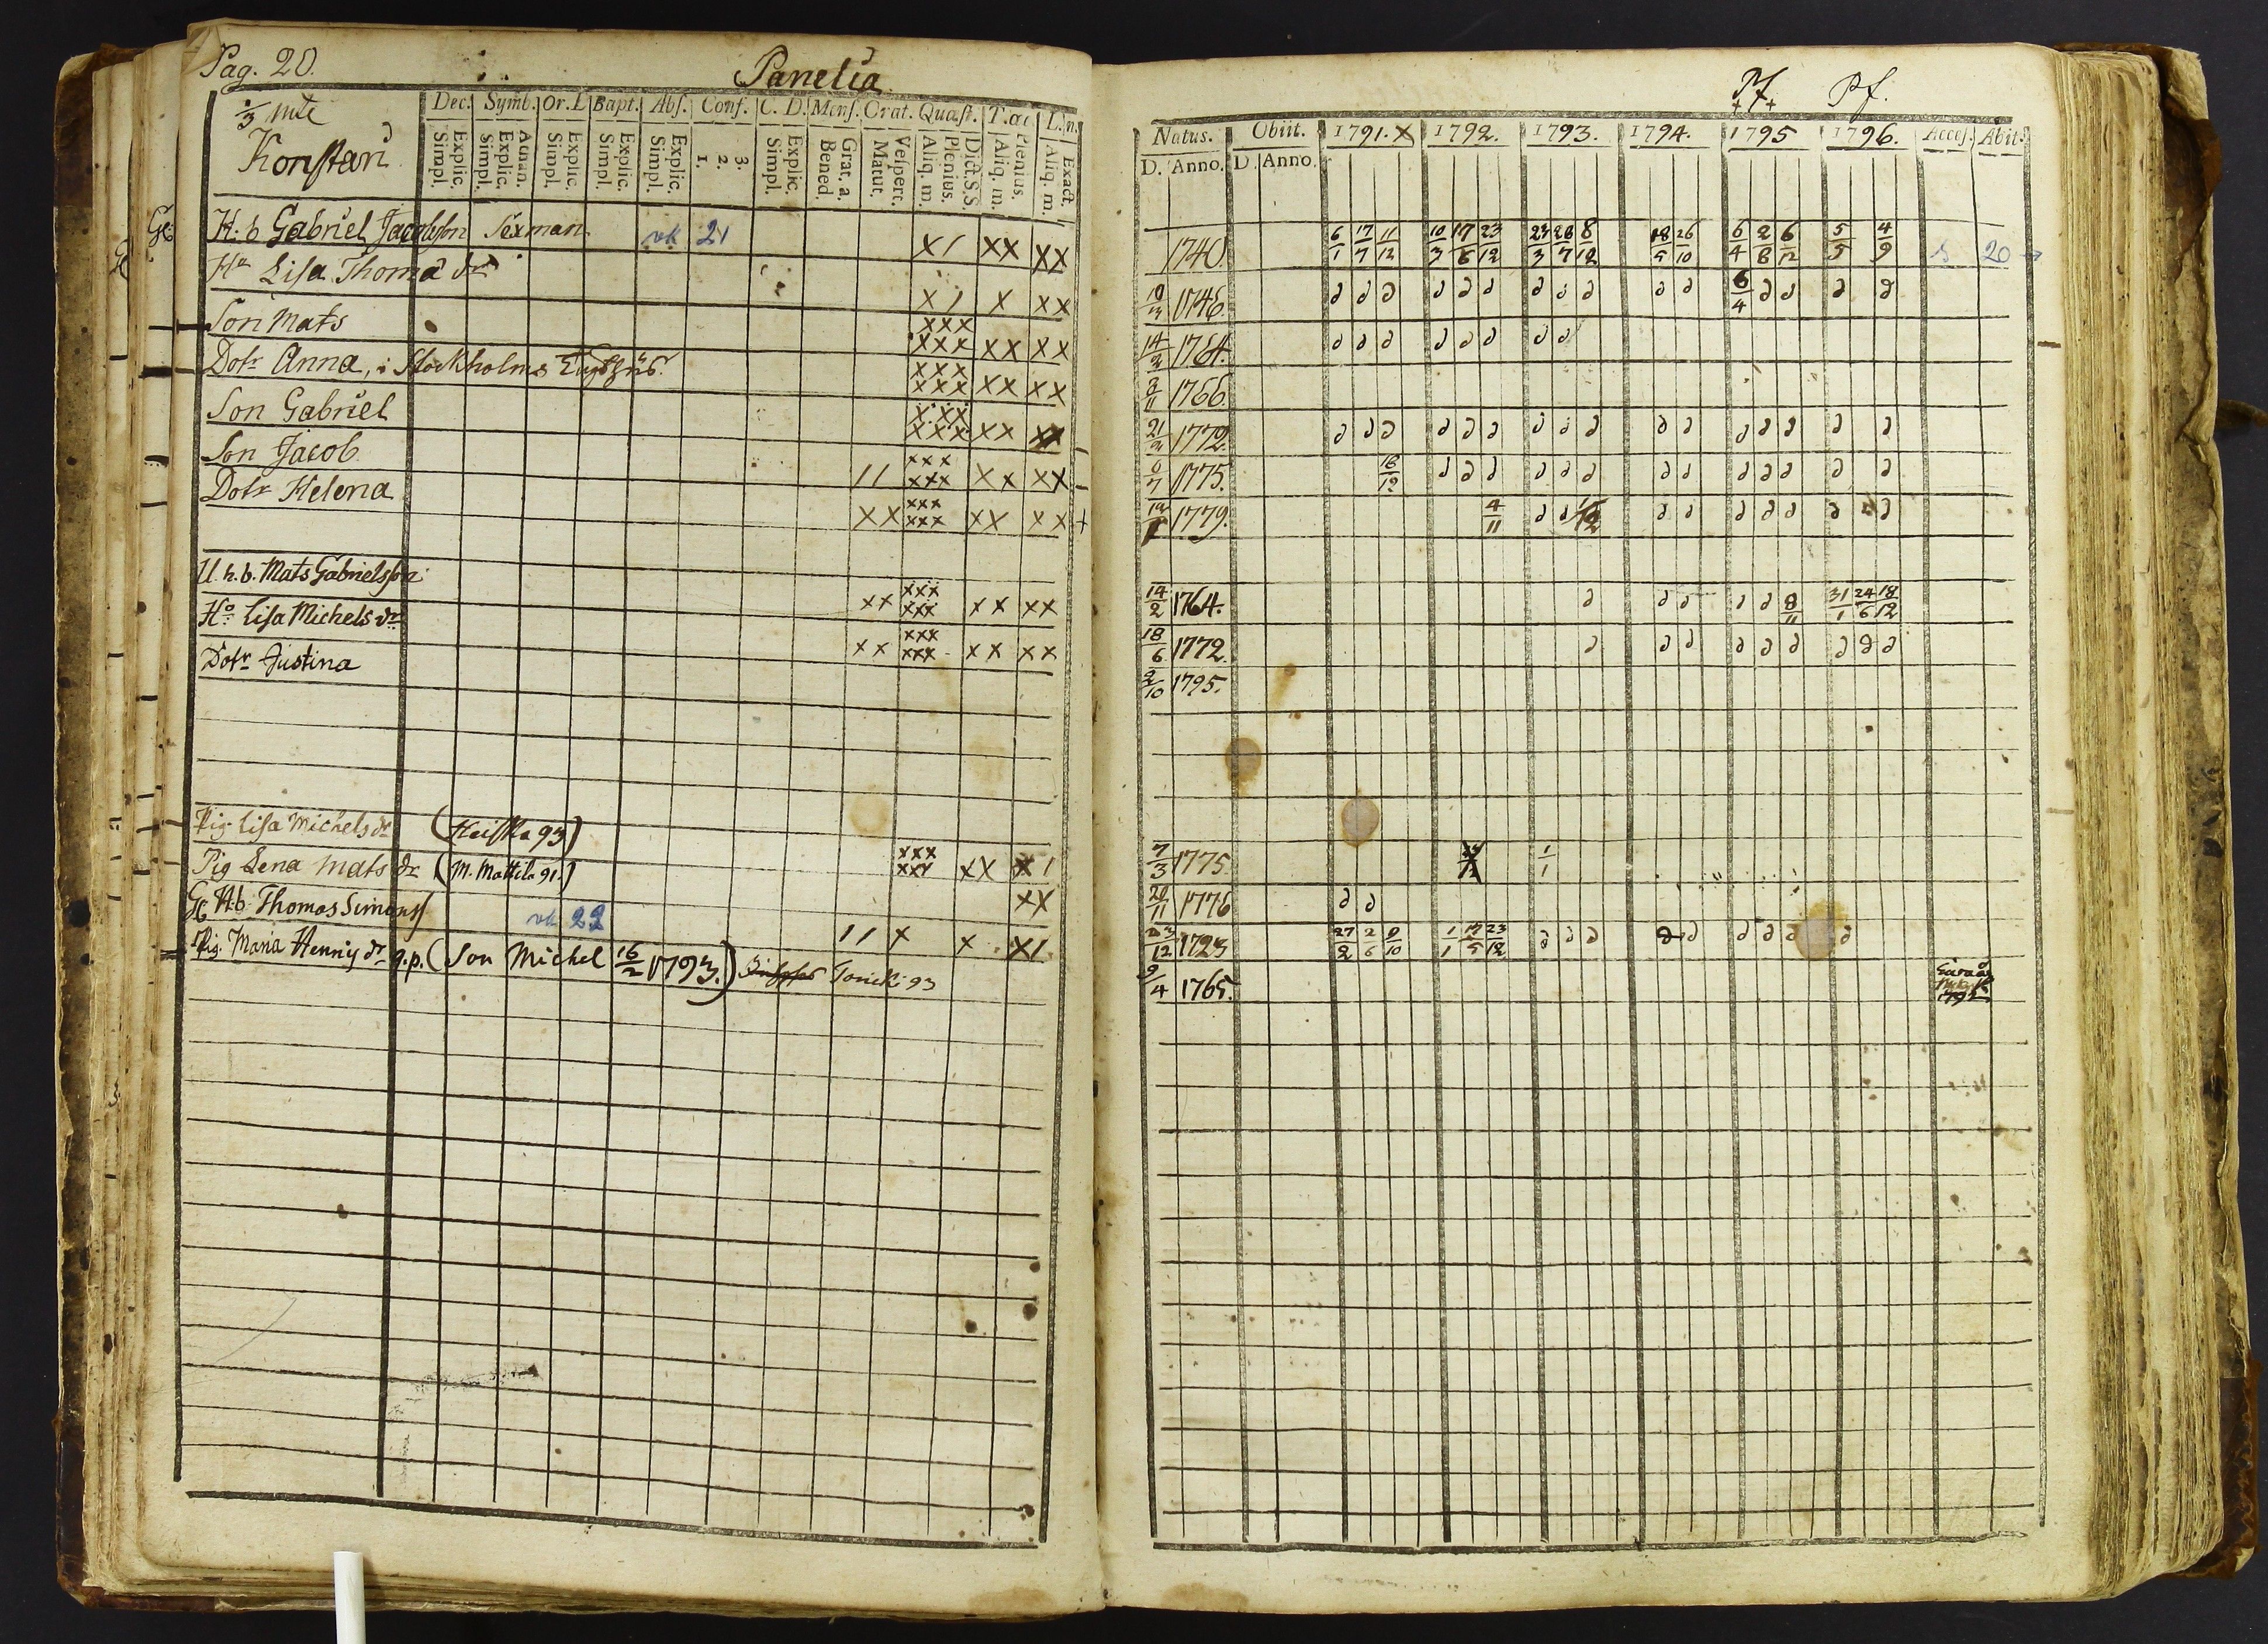 Pag. 20.
Panelia
1/3 mtl
Konstari
Dec. Symb. Or. D. Bapt. Abs. Conf. C. D. Mens. Orat. Quæst. T. œc. L. n.
Simpl. Explic. Simpl. Explic. Athan. Simpl. Explic. Simpl. Explic. Simpl. Explic. 1. 2. 3. Simpl. Explic. Bened. Grat. a. Matut. Vespert. Aliq. m. Plenius. Dict. S.S. Aliq. m. Plenius. Aliq. m. Exact.
H. b. Gabriel Jacobsson Sexman vk 21 x1 xx xx
Ha Lisa Thomæ dr x1 x xx
Son Mats xxx xxx xx xx
Dotr Anna, i Stockholms xxx xxx xx xx
Son Gabriel xxx xxx xx xx
Son Jacob 11 xxx xxx xx xx
Dotr Helena xx xxx xxx xx xx
U. h. b. Mats Gabrielsson xx xxx xxx xx xx
Ha Lisa Michels dr xx xxx xxx xx xx
Dotr Justina
Pig. Lisa Michels dr (Heiska 93) xxx xxx xx x1
Pig Lena Mats dr (M. Mattila 91.) xx
H.b. Thomas Simonss vk 22 11 x x x1
Pig. Maria Hennig dr q.p. (Son Michel 16/2 1793.) Tonicki 93
Pf. Pf.
Natus. Obiit. 1791. x 1792. 1793. 1794. 1795 1796. Acces. Abit.
D. Anno. D. Anno.
1740. 6/1 17/7 11/12 10/3 17/6 23/12 23/3 28/7 8/12 18/5 26/10 6/4 2/8 6/12 5/5 4/9 s 20 →
10/3 1746. 6/4
14/2 1764.
8/11 1766
21/2 1772.
6/7 1775. 16/12
1779. 4/11
14/2 1764. 8/11 31/1 24/6 18/12
18/6 1772.
2/10 1795.
7/3 1775 1/1
20/11 1776
23/12 1723 27/2 2/6 9/10 1/1 17/5 23/12
9/4 1765.
1792